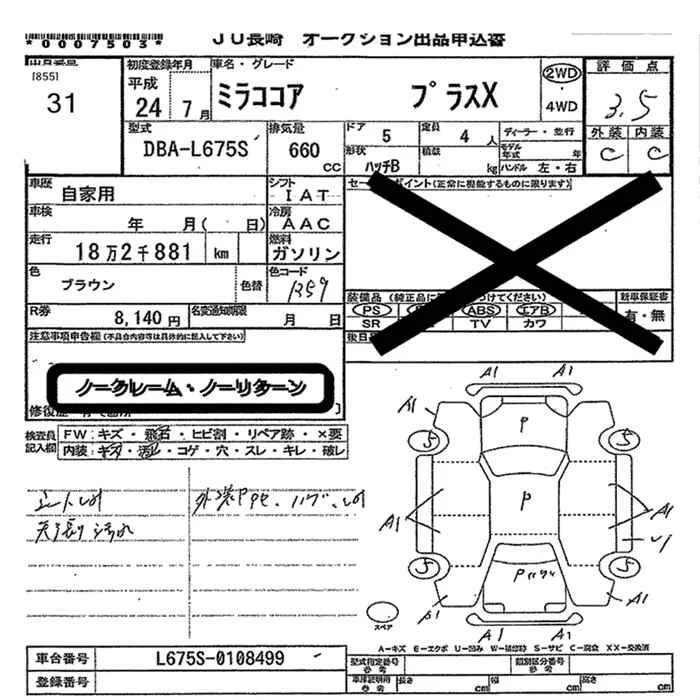 *0007503*
JU長崎 オークション出品申込番
[855]
31
初度登録年月
平成
24年7月
車名・グレード
ミラココア プラスX
2WD
・
4WD
評価点
3.5
外装 内装
C C
型式
DBA-L675S
排気量
660
CC
ドア
5
定員
4人
形状
ハッチB
積載
kg
ディーラー・並行
モデル年式 年
ハンドル 左・右
車歴
自家用
シフト
IAT
車検
年 月( 日)
冷房
AAC
走行
18万2千881 km
燃料
ガソリン
色
ブラウン
色替
色コード
R59
R券
8,140円
名変通知期限
月 日
セー ポイント(正常に機能するものに限ります)
装備品(純正品に つけてください)
PS ABS エアB
SR TV カワ
新車保証書
有・無
後日
注意事項申告欄(不具合内容等は具体的に記入して下さい)
ノークレーム・ノーリターン
修復歴
検査員
記入欄
FW:キズ・飛石・ヒビ割・リペア跡・×要
内装:キズ・汚レ・コゲ・穴・スレ・キレ・破レ
天張汚れ
A1 A1
A1 A1
P
S S
P
A1 A1
S S
P
A1
A1 A1
スペア
A-キズ E-エクボ U-凹み W-補修跡 S-サビ C-腐食 XX-交換済
車台番号
L675S-0108499
登録番号
型式指定番号
参考
類別区分番号
参考
車庫証明用
参考
長さ cm
幅 cm
高さ cm